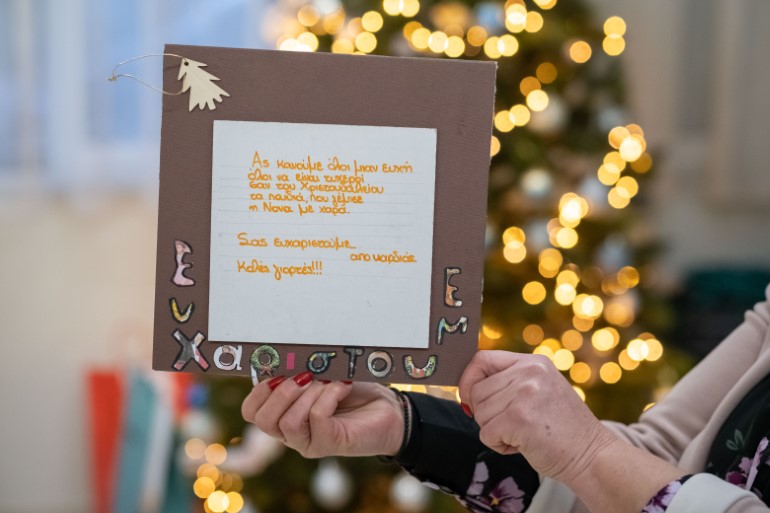 Ας κανουμε όλοι μιαν ευχή
όλοι να είναι τυχεροί
σαν του
τα παιδιά, που γέμισε
η Νονα με χαρά.
Σας ευχαριστούμε
απο καρδιάς
Καλές γιορτές!!!
ΕυΧαριστουΜΕ